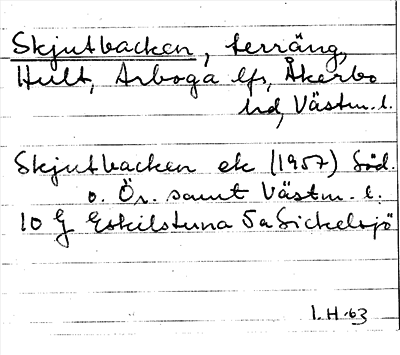 Skjutbacken, terräng,
Hult, Arboga lfs, Åkerbo
hd, Västm. l.
Skjutbacken ek (1957) Söd.
o. Ör. samt Västm. l.
10 G Eskilstuna 5a Sickelsjö
I.H. -63